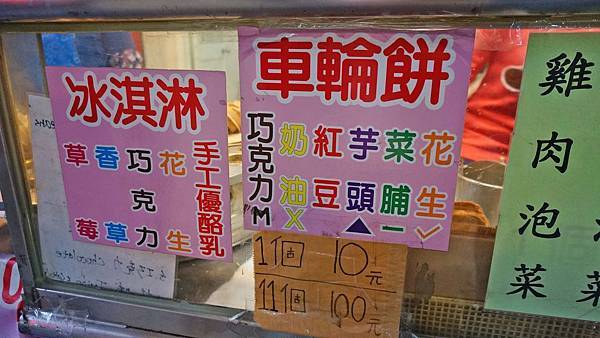 冰淇淋
草莓
香草
巧克力
花生
手工優酪乳
車輪餅
巧克力M
奶油X
紅豆
芋頭▲
菜脯一
花生✓
1個 10元
11個 100元
雞肉泡菜